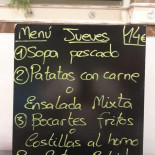 Menú Jueves 14€
① Sopa pescado
② Patatas con carne
o
Ensalada Mixta
③ Bocartes fritos
o
Costillas al horno